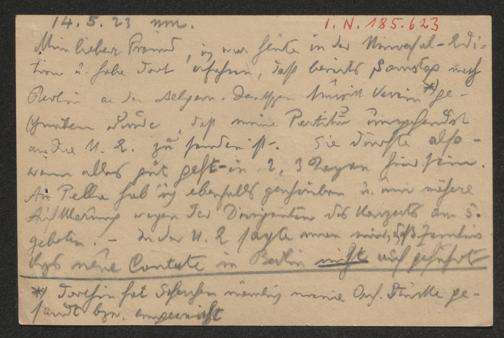 14.5.23 nm. I.N. 185.623
Mein lieber Freund, ich war heute in der Universal-Edi-
tion u. habe dort erfahren, daß bereits Samstag nach
Berlin an den Allgem. Deutschen Musikverein *) ge-
schrieben wurde, daß meine Partitur umgehendst
an die U. E. zu senden ist. Sie dürfte also -
wenn alles gut geht - in 2, 3 Tagen hier sein.
An Pella hab ich ebenfalls geschrieben u. um nähere
Aufklärung wegen der Dirigenten des Konzerts am 5.
gebeten. - In der U. E. sagte man mir, daß Zemlinsky
neue Cantate in Berlin nicht aufgeführt
*) Dorthin hat Scherchen nämlich meine Orch. Stücke ge-
sandt bzw. eingereicht